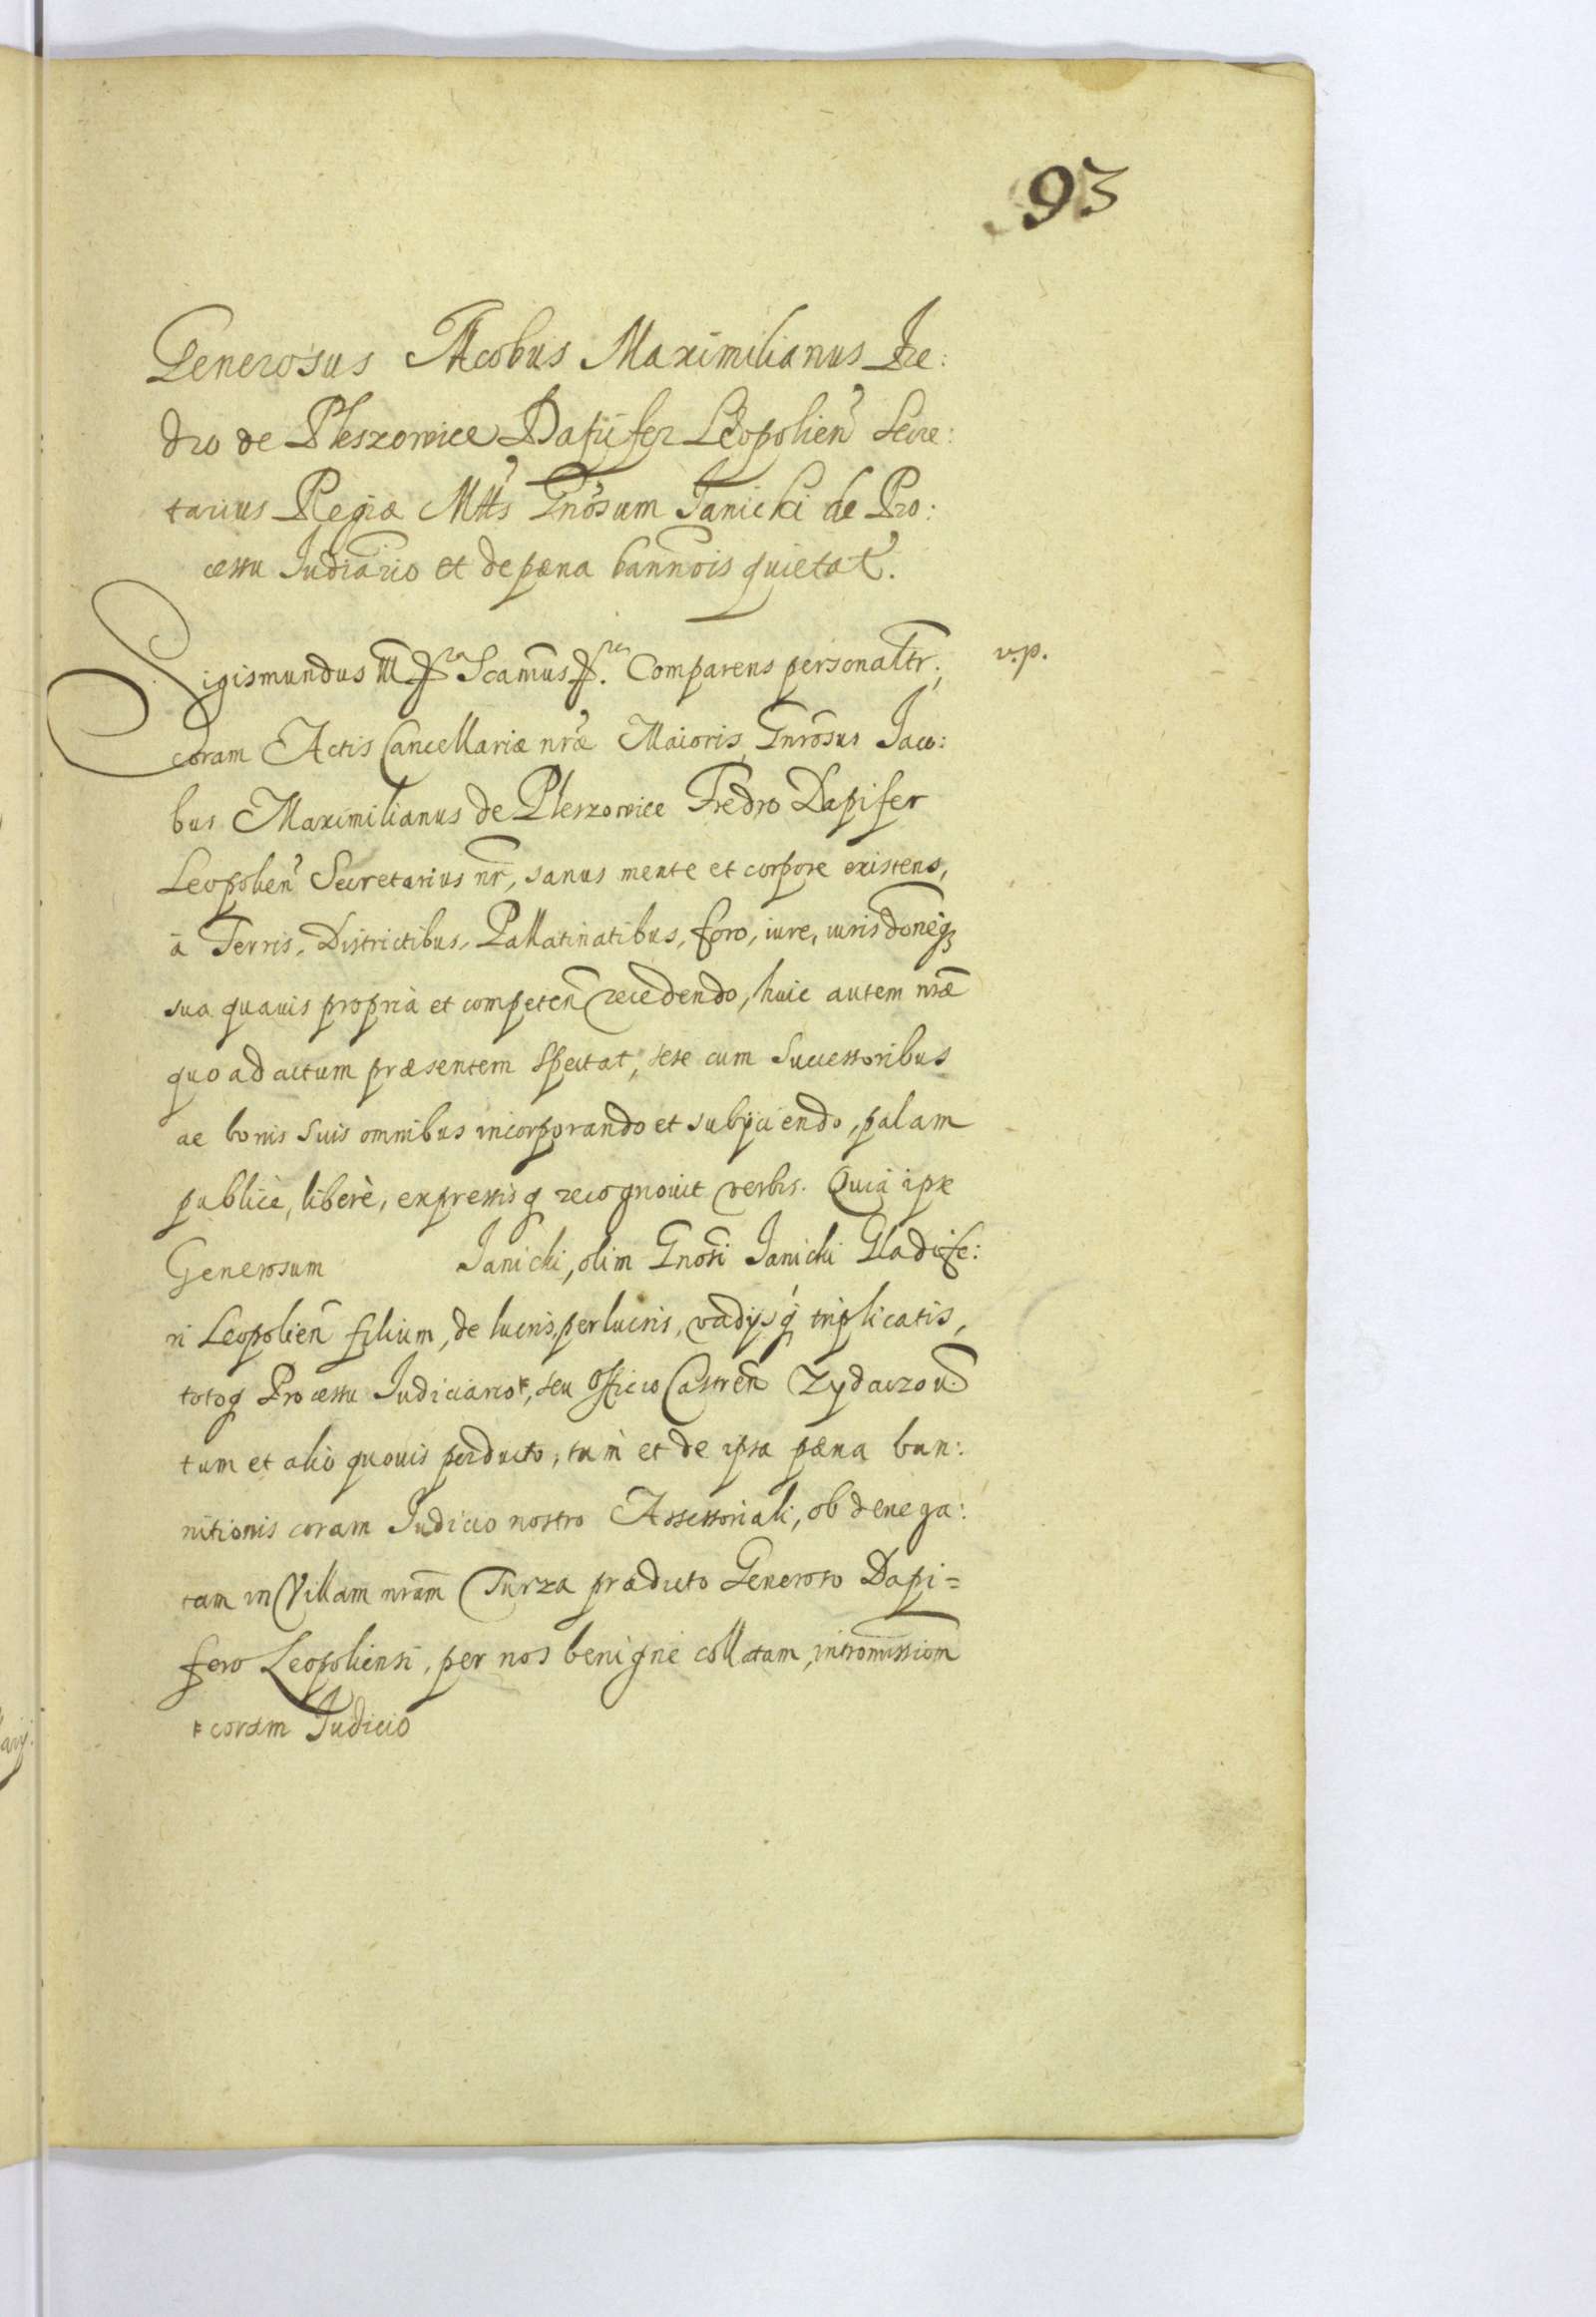 93
Generosus Jacobus Maximilianus Fre:
dro de Pleszowice Dapifer Leopolien̄ Secre:
tarius Regiæ Mttis Gnosum Janicki de Pro:
cessu Judiario et de pæna bannois quietat.
Sigismundus III Scamus Comparens personaltr; v.p.
coram Actis Cancellariæ nræ Maioris, Gnrosus Jaco:
bus Maximilianus de Pleszowice Fredro Dapifer
Leopolien̄ Secretarius nr, sanus mente et corpore existens,
à Terris, Districtibus, Pallatinatibus, foro, iure, iurisdoneq
sua quauis propria et competen̄ recedendo, huic autem nræ
quo ad actum præsentem spectat, sese cum Successoribus
ac bonis suis omnibus incorporando et subijciendo, palam
publicè, liberè, expressisq recognouit verbis. Quia ipse
Generosum Janicki, olim Gnosi Janicki Gladife:
ri Leopolien̄ filium, de lucris, perlucris, vadijsq triplicatis,
totoq Processu Judiciario ⹋, seu officio Castren̄ Zydaczou.
tum et alio quouis perducto, tum et de ipsa pæna ban:
nitionis coram Judicio nostro Assessoriali, ob denega:
tam in Villam nram Turza prædicto Generoso Dapi=
fero Leopoliensi, per nos benignè collatam, intromissiom
⹋ coram Judicio